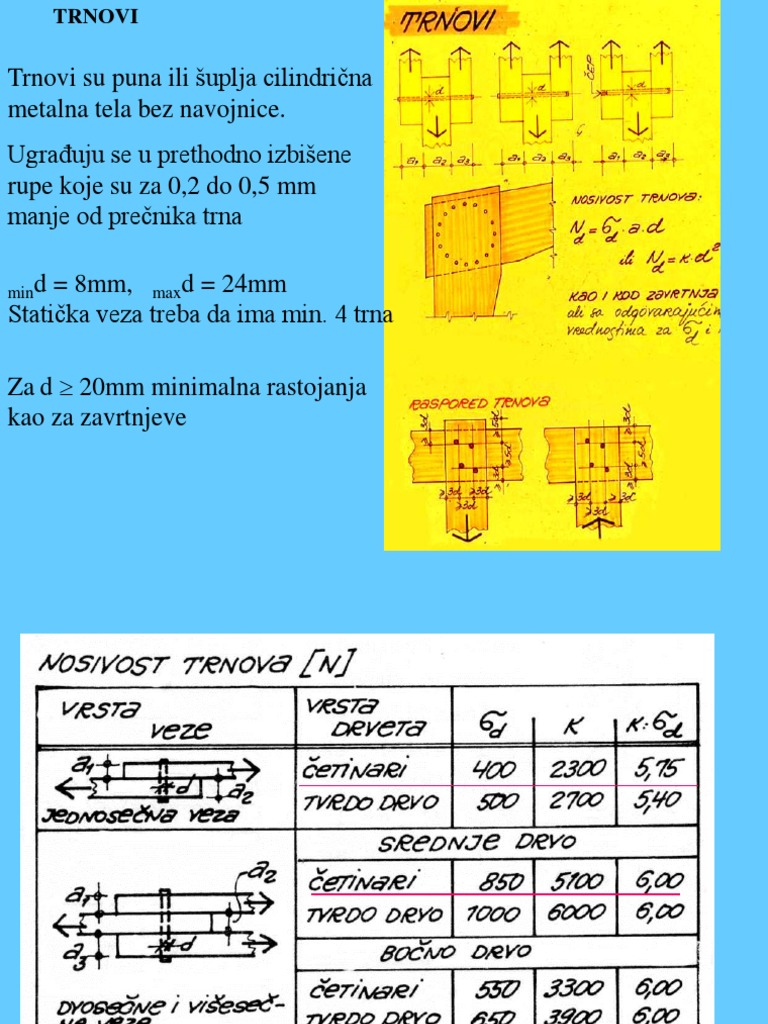 TRNOVI
Trnovi su puna ili šuplja cilindrična
metalna tela bez navojnice.
Ugrađuju se u prethodno izbišene
rupe koje su za 0,2 do 0,5 mm
manje od prečnika trna
mind = 8mm, maxd = 24mm
Statička veza treba da ima min. 4 trna
Za d ≥ 20mm minimalna rastojanja
kao za zavrtnjeve
TRNOVI
ČEP
d
d
d
a1 a2 a3
a1 a2 a3
a1 a2 a3
NOSIVOST TRNOVA:
Nd = σd · a · d
ili Nd = K · d²
KAO I KOD ZAVRTNJA
ali sa odgovarajućim
vrednostima za σd i
RASPORED TRNOVA
≥3d
≥5d
≥3d
≥5d
≥3d ≥3d
≥3d
≥3d
≥3d
≥5d
≥3d
≥3d ≥3d
≥3d
NOSIVOST TRNOVA [N]
VRSTA VEZE
VRSTA DRVETA
σd K K:σd
a1
d
a2
JEDNOSEČNA VEZA
ČETINARI 400 2300 5,75
TVRDO DRVO 500 2700 5,40
SREDNJE DRVO
a2
a1
d
a3
ČETINARI 850 5100 6,00
TVRDO DRVO 1000 6000 6,00
BOČNO DRVO
ČETINARI 550 3300 6,00
DVOSEČNE I VIŠESEČ-
NE VEZE
TVRDO DRVO 650 3900 6,00